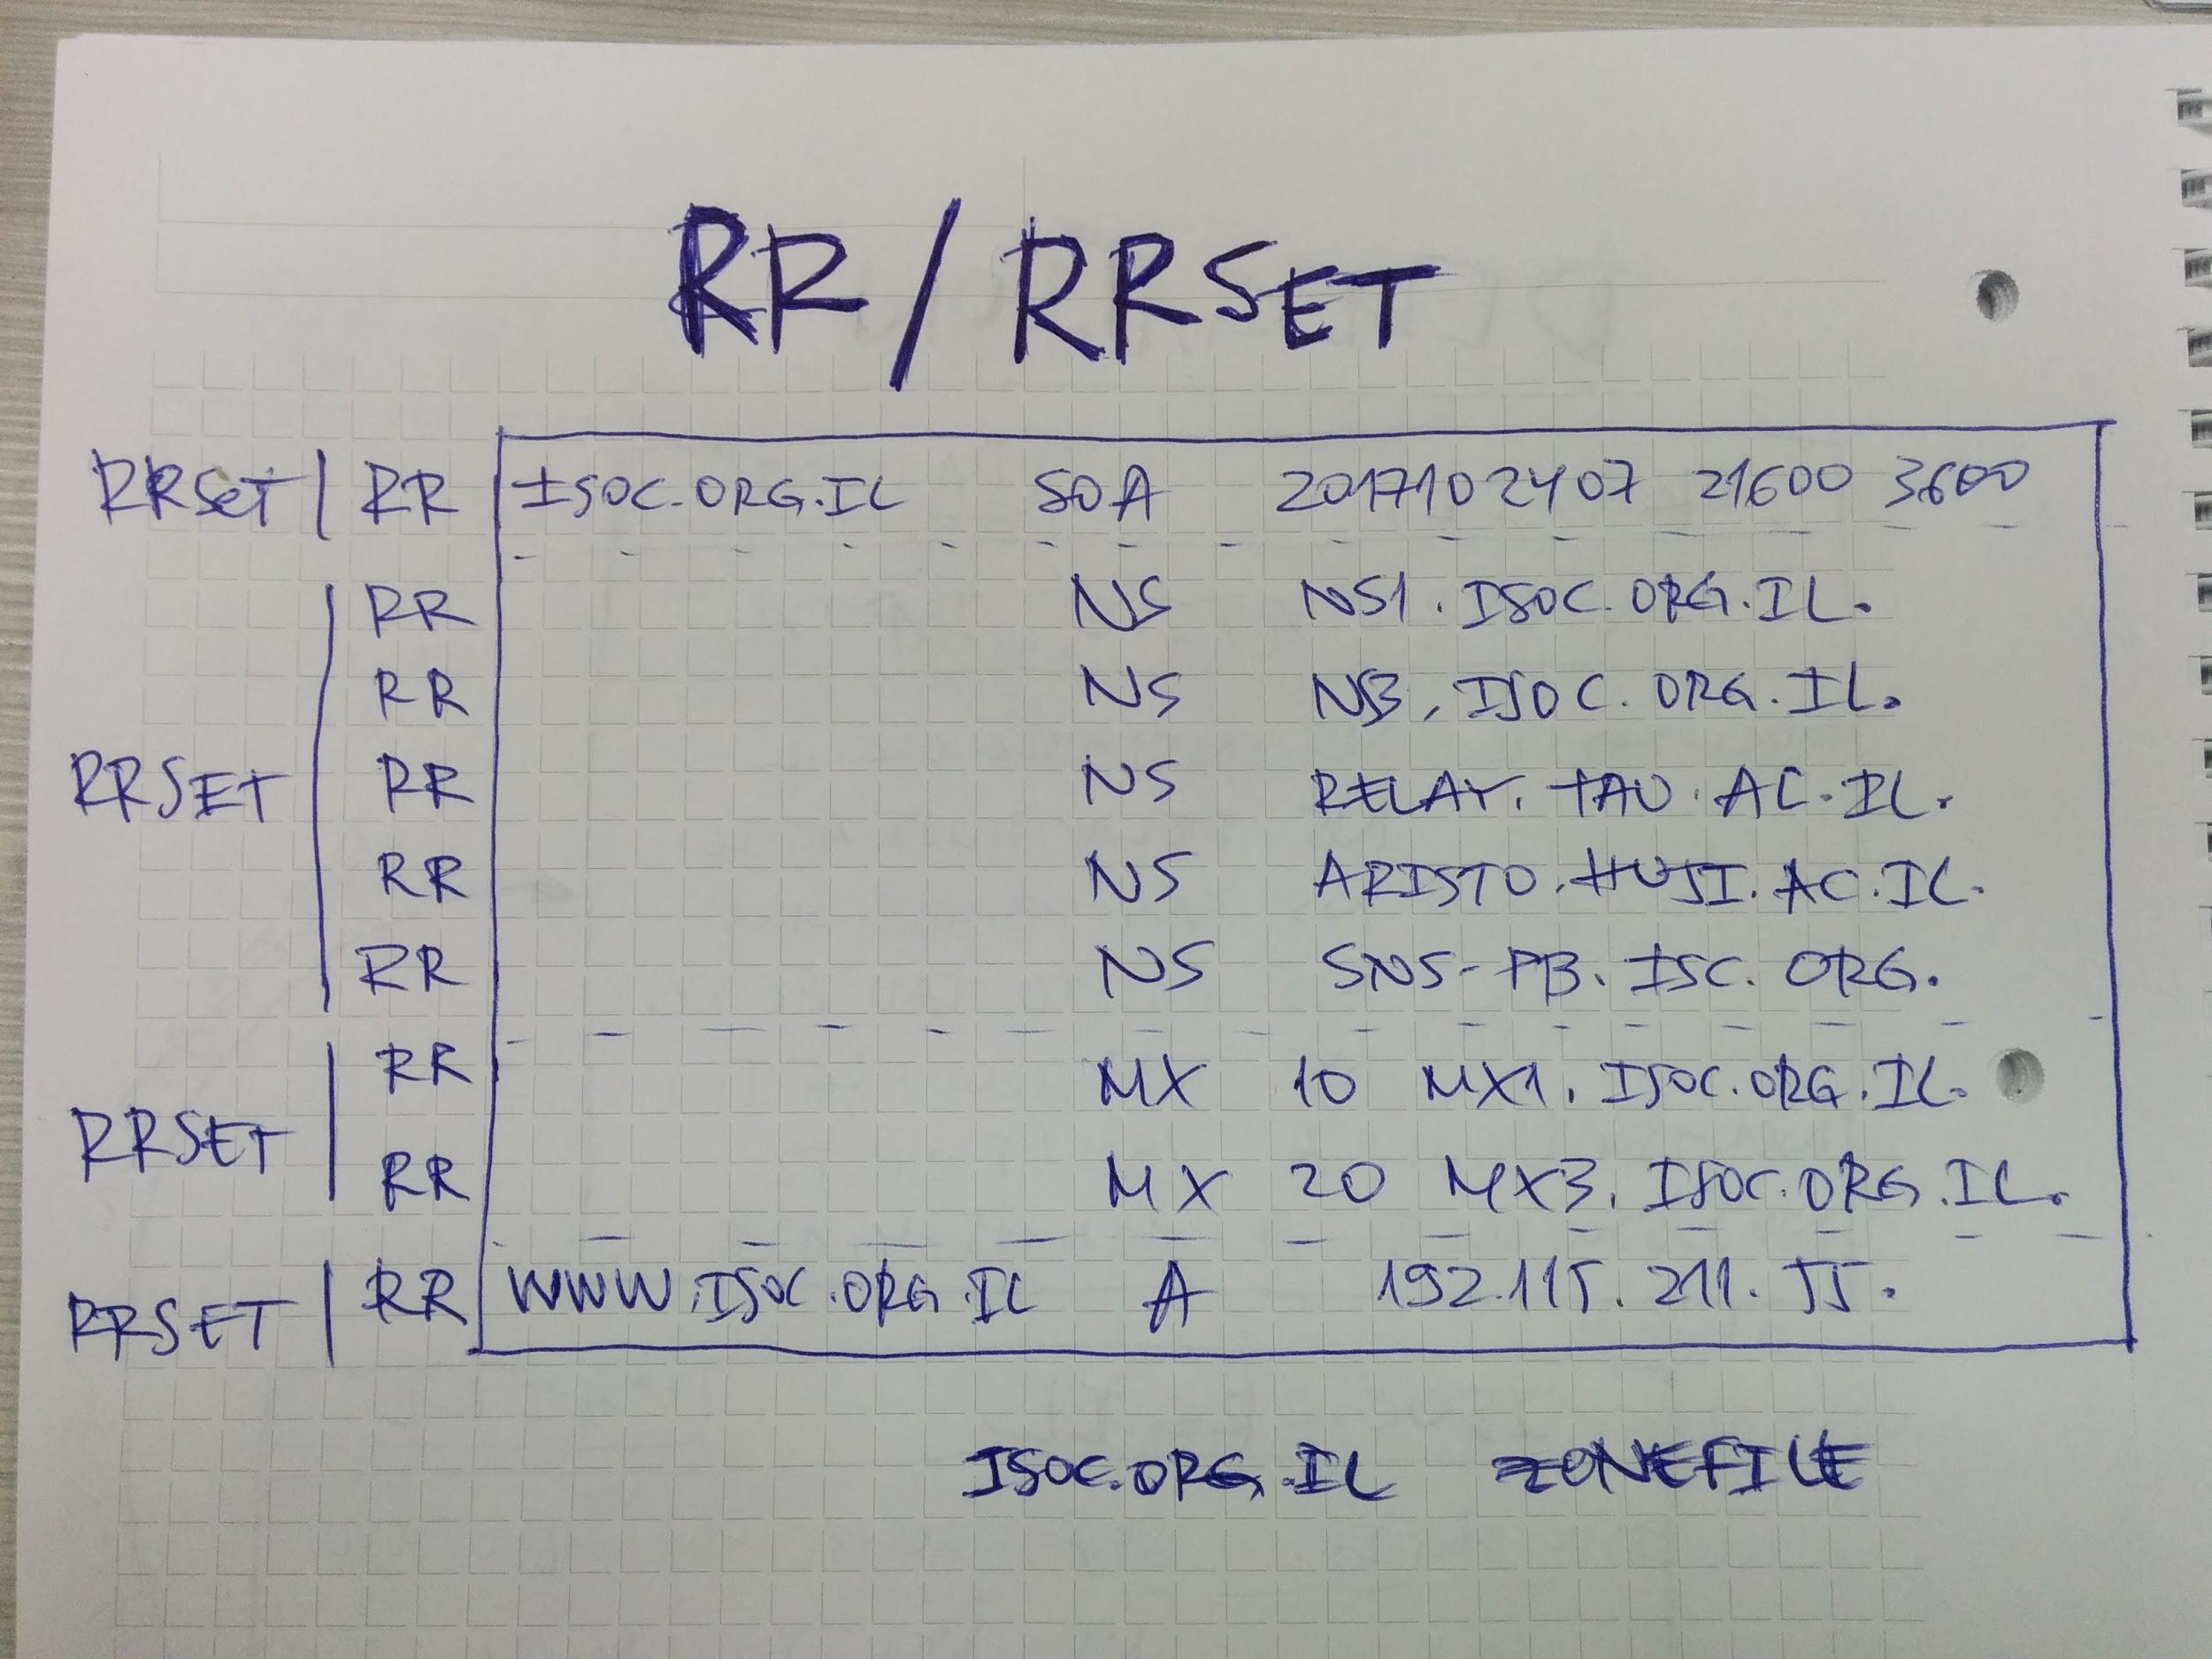 RR/RRSET
RRSET | RR ISOC.ORG.IL SOA 2017102407 21600 3600
RR NS NS1.ISOC.ORG.IL.
RR NS NS3.ISOC.ORG.IL.
RRSET RR NS RELAY.TAU.AC.IL.
RR NS ARISTO.HUJI.AC.IL.
RR NS SNS-PB.ISC.ORG.
RR MX 10 MX1.ISOC.ORG.IL.
RRSET RR MX 20 MX3.ISOC.ORG.IL.
RRSET | RR WWW.ISOC.ORG.IL A 192.115.211.55.
ISOC.ORG.IL ZONEFILE